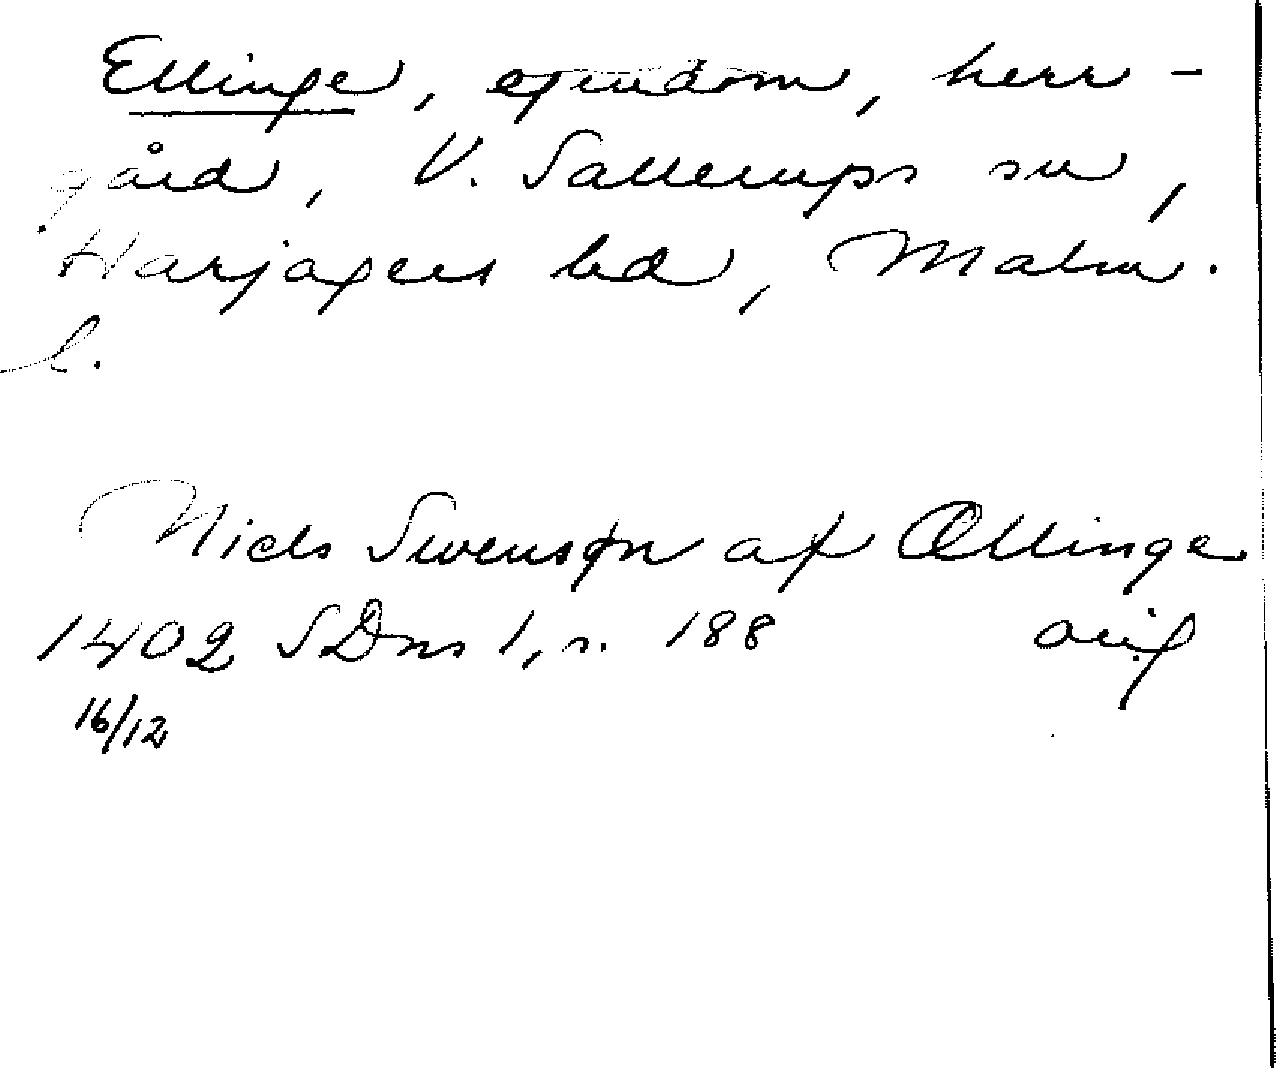 Ellinge, egendom, herr-
gård, V. Sallerups sn,
Harjagers hd, Malm.
l.
Niels Swensøn af Œllinge
1402 SDns 1, s. 188 orig
16/12